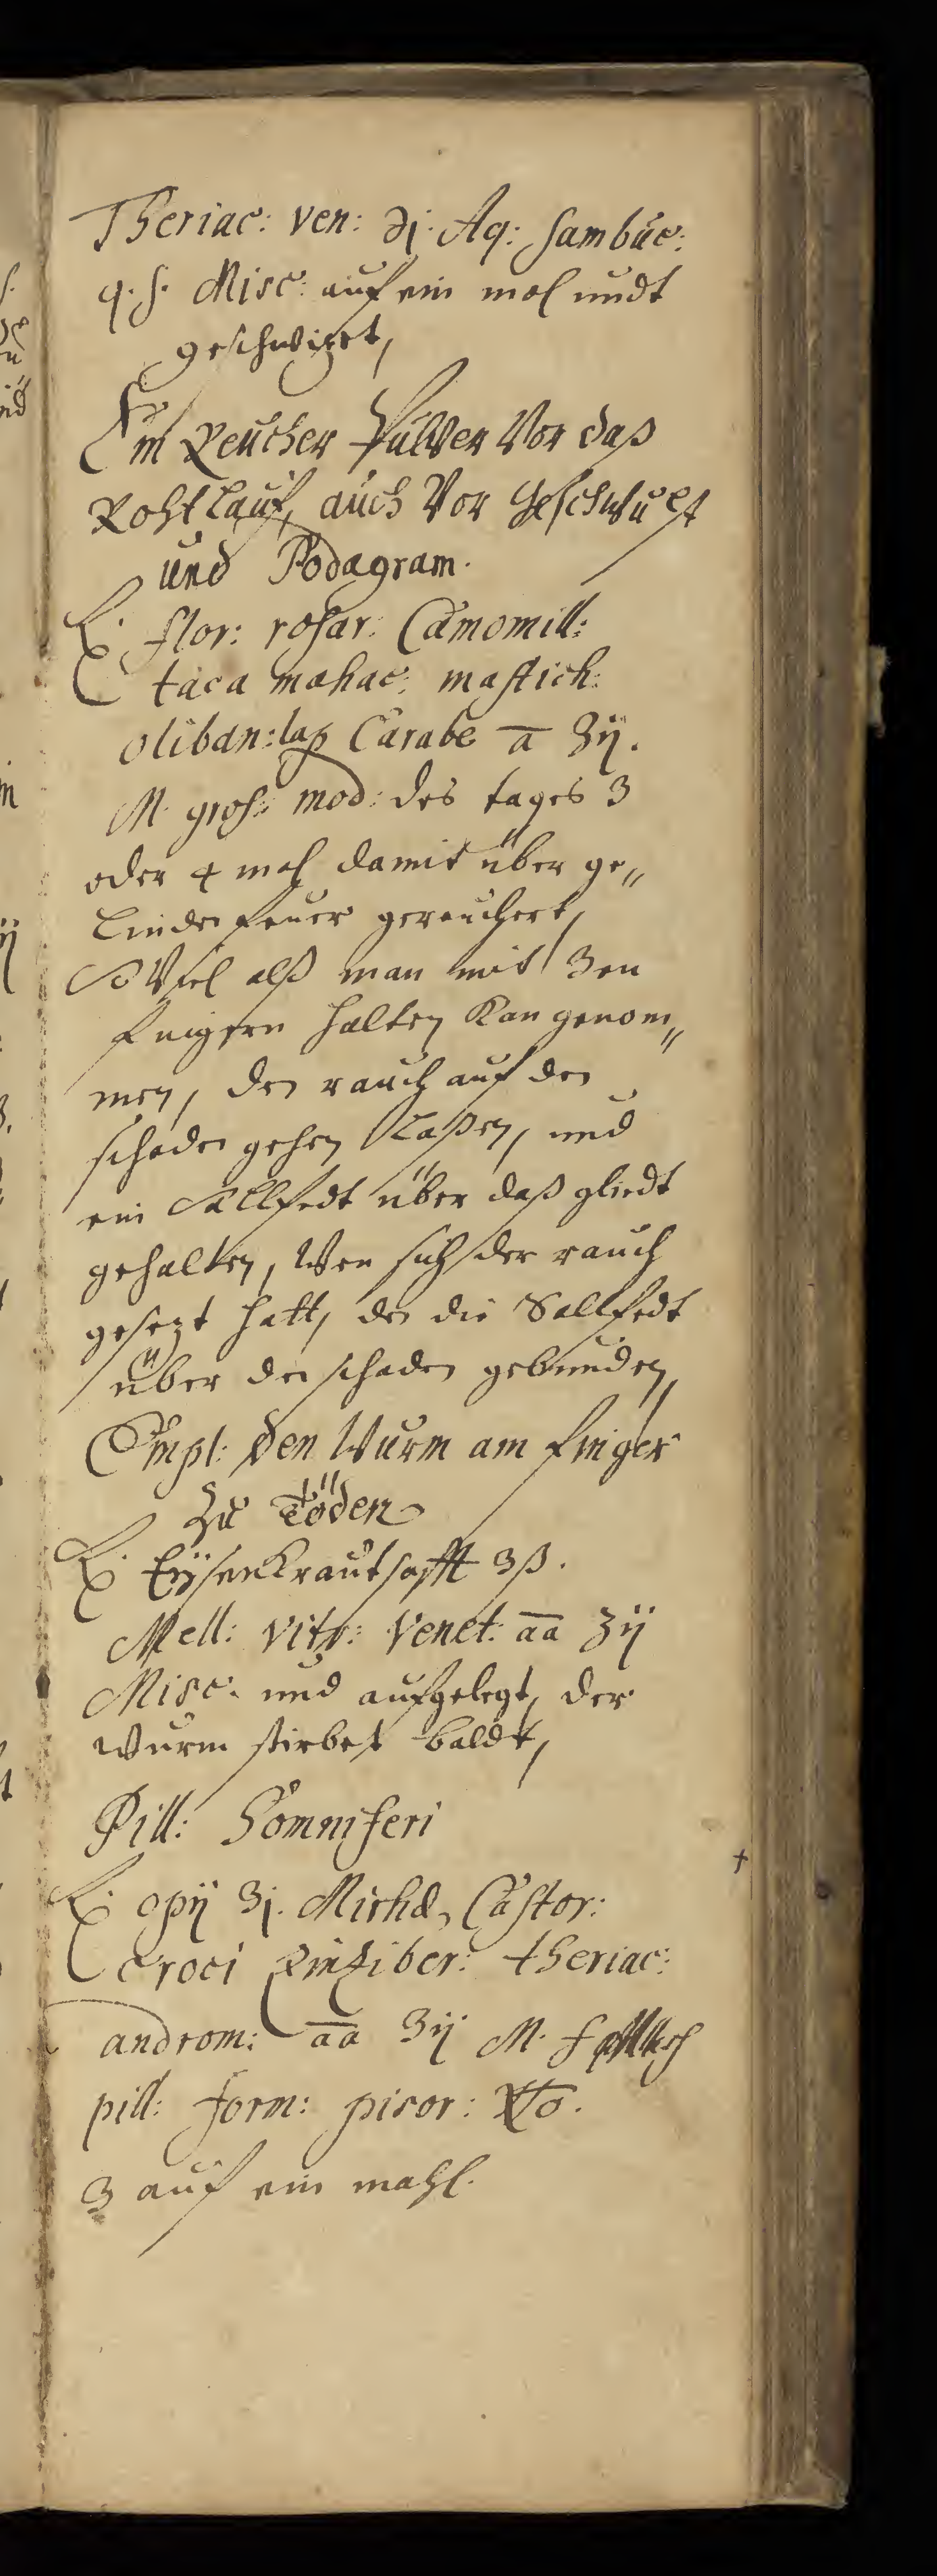 Theriac: ven: ℈j. Aq: sambuc:
q. s. Misc: auf ein mal undt
geschwizet,
Ein Reucher Pulver Vor daß
Rohtlauf, auch Vor Geschwulst
und Podagram.
℞. flor: rosar: Camomill:
taca mahac: mastich:
oliban: lap Carabe a ʒij.
M. gros: mod: des tages 3
oder 4 mal damit über ge„
linde feuer gereuchert,
So Viel alß man mit 3en
fingern halten Kan genom„
men, den rauch auf den
schaden gehen Laßen, und
ein Sallfedt über daß gliedt
gehalten, Wen sich der rauch
gesezt hatt, den die Sallfedt
über den schaden gebunden,
Empl: den Wurm am finger
zu Töden
℞. Eÿsenkrautsafft ʒß.
Mell: vitr: Venet: aa ʒij
Misc. und aufgelegt, der
wurm stirbet baldt,
Pill: Somniferi
℞. opij ʒj. Mirhæ, Castor:
croci Zinziber: theriac:
androm: aa ʒij M. f
pill: form: pisor:
3 auf ein mahl.